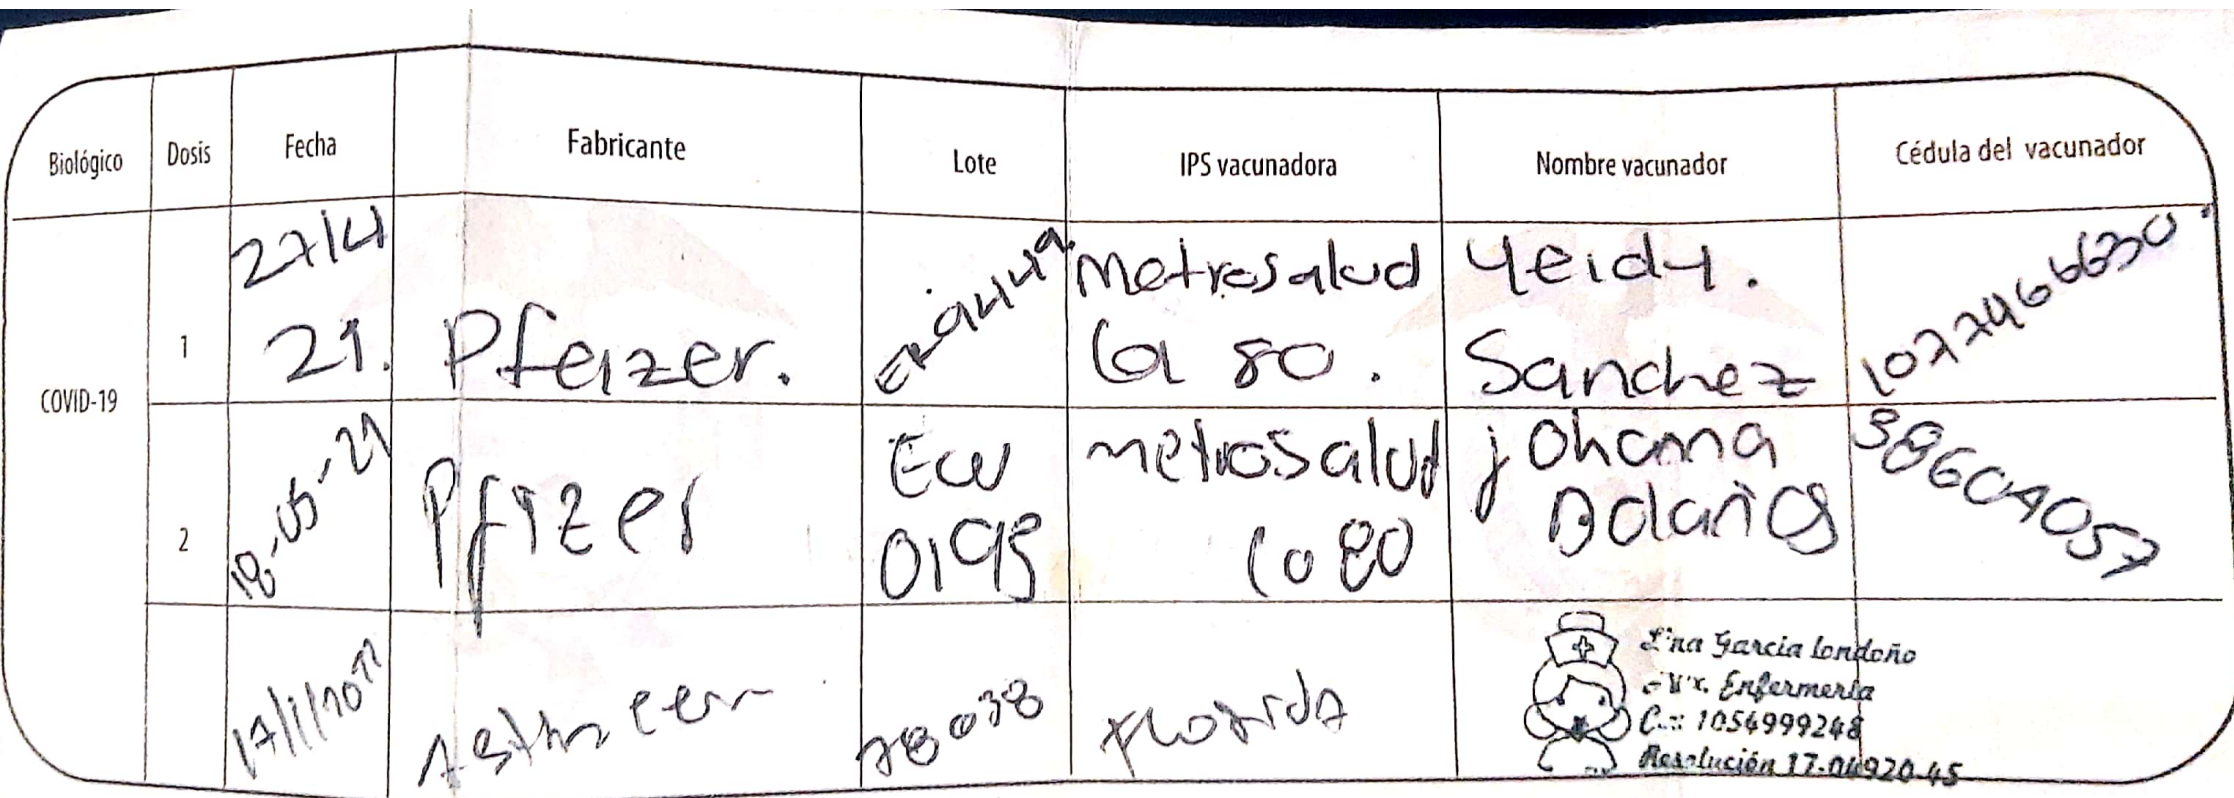 Biológico Dosis Fecha Fabricante Lote IPS vacunadora Nombre vacunador Cédula del vacunador
COVID-19
1
27/4
21.
Pfeizer.
metrosalud
Ca 80.
Yeidy.
Sanchez
1077466630
2
18-05-21
Pfizer
EW
0195
metrosalud
Co 80
johana
Bolaños
38604057
78038
Florida
Lina Garcia Londoño
Aux. Enfermeria
C.c: 1054999248
Resolución 17-04920-45